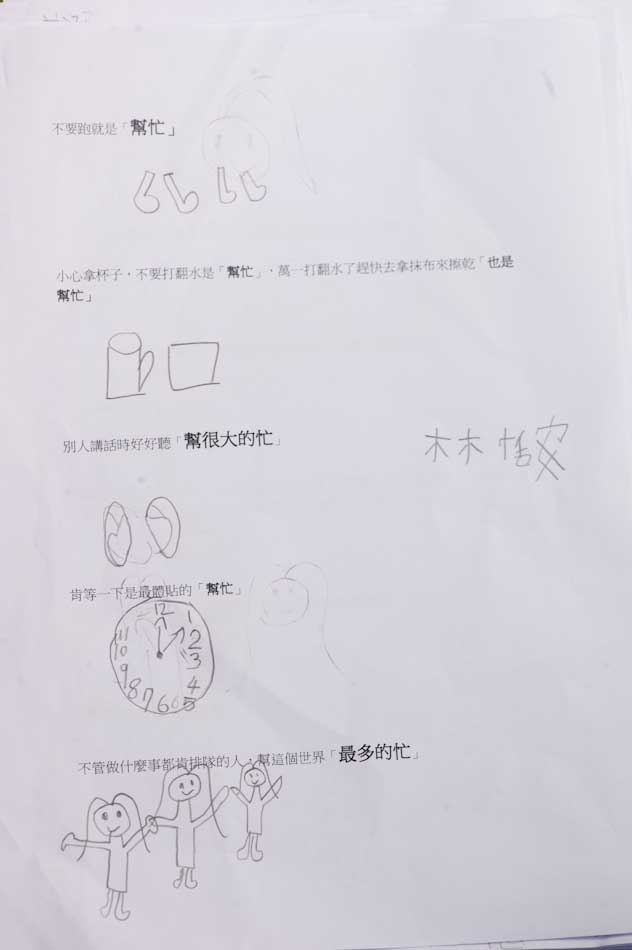 不要跑就是「幫忙」
小心拿杯子，不要打翻水是「幫忙」，萬一打翻水了趕快去拿抹布來擦乾「也是
幫忙」
別人講話時好好聽「幫很大的忙」
林 恬安
肯等一下是最體貼的「幫忙」
12
11 1
10 2
9 3
8 4
7 6 5
不管做什麼事都肯排隊的人，幫這個世界「最多的忙」